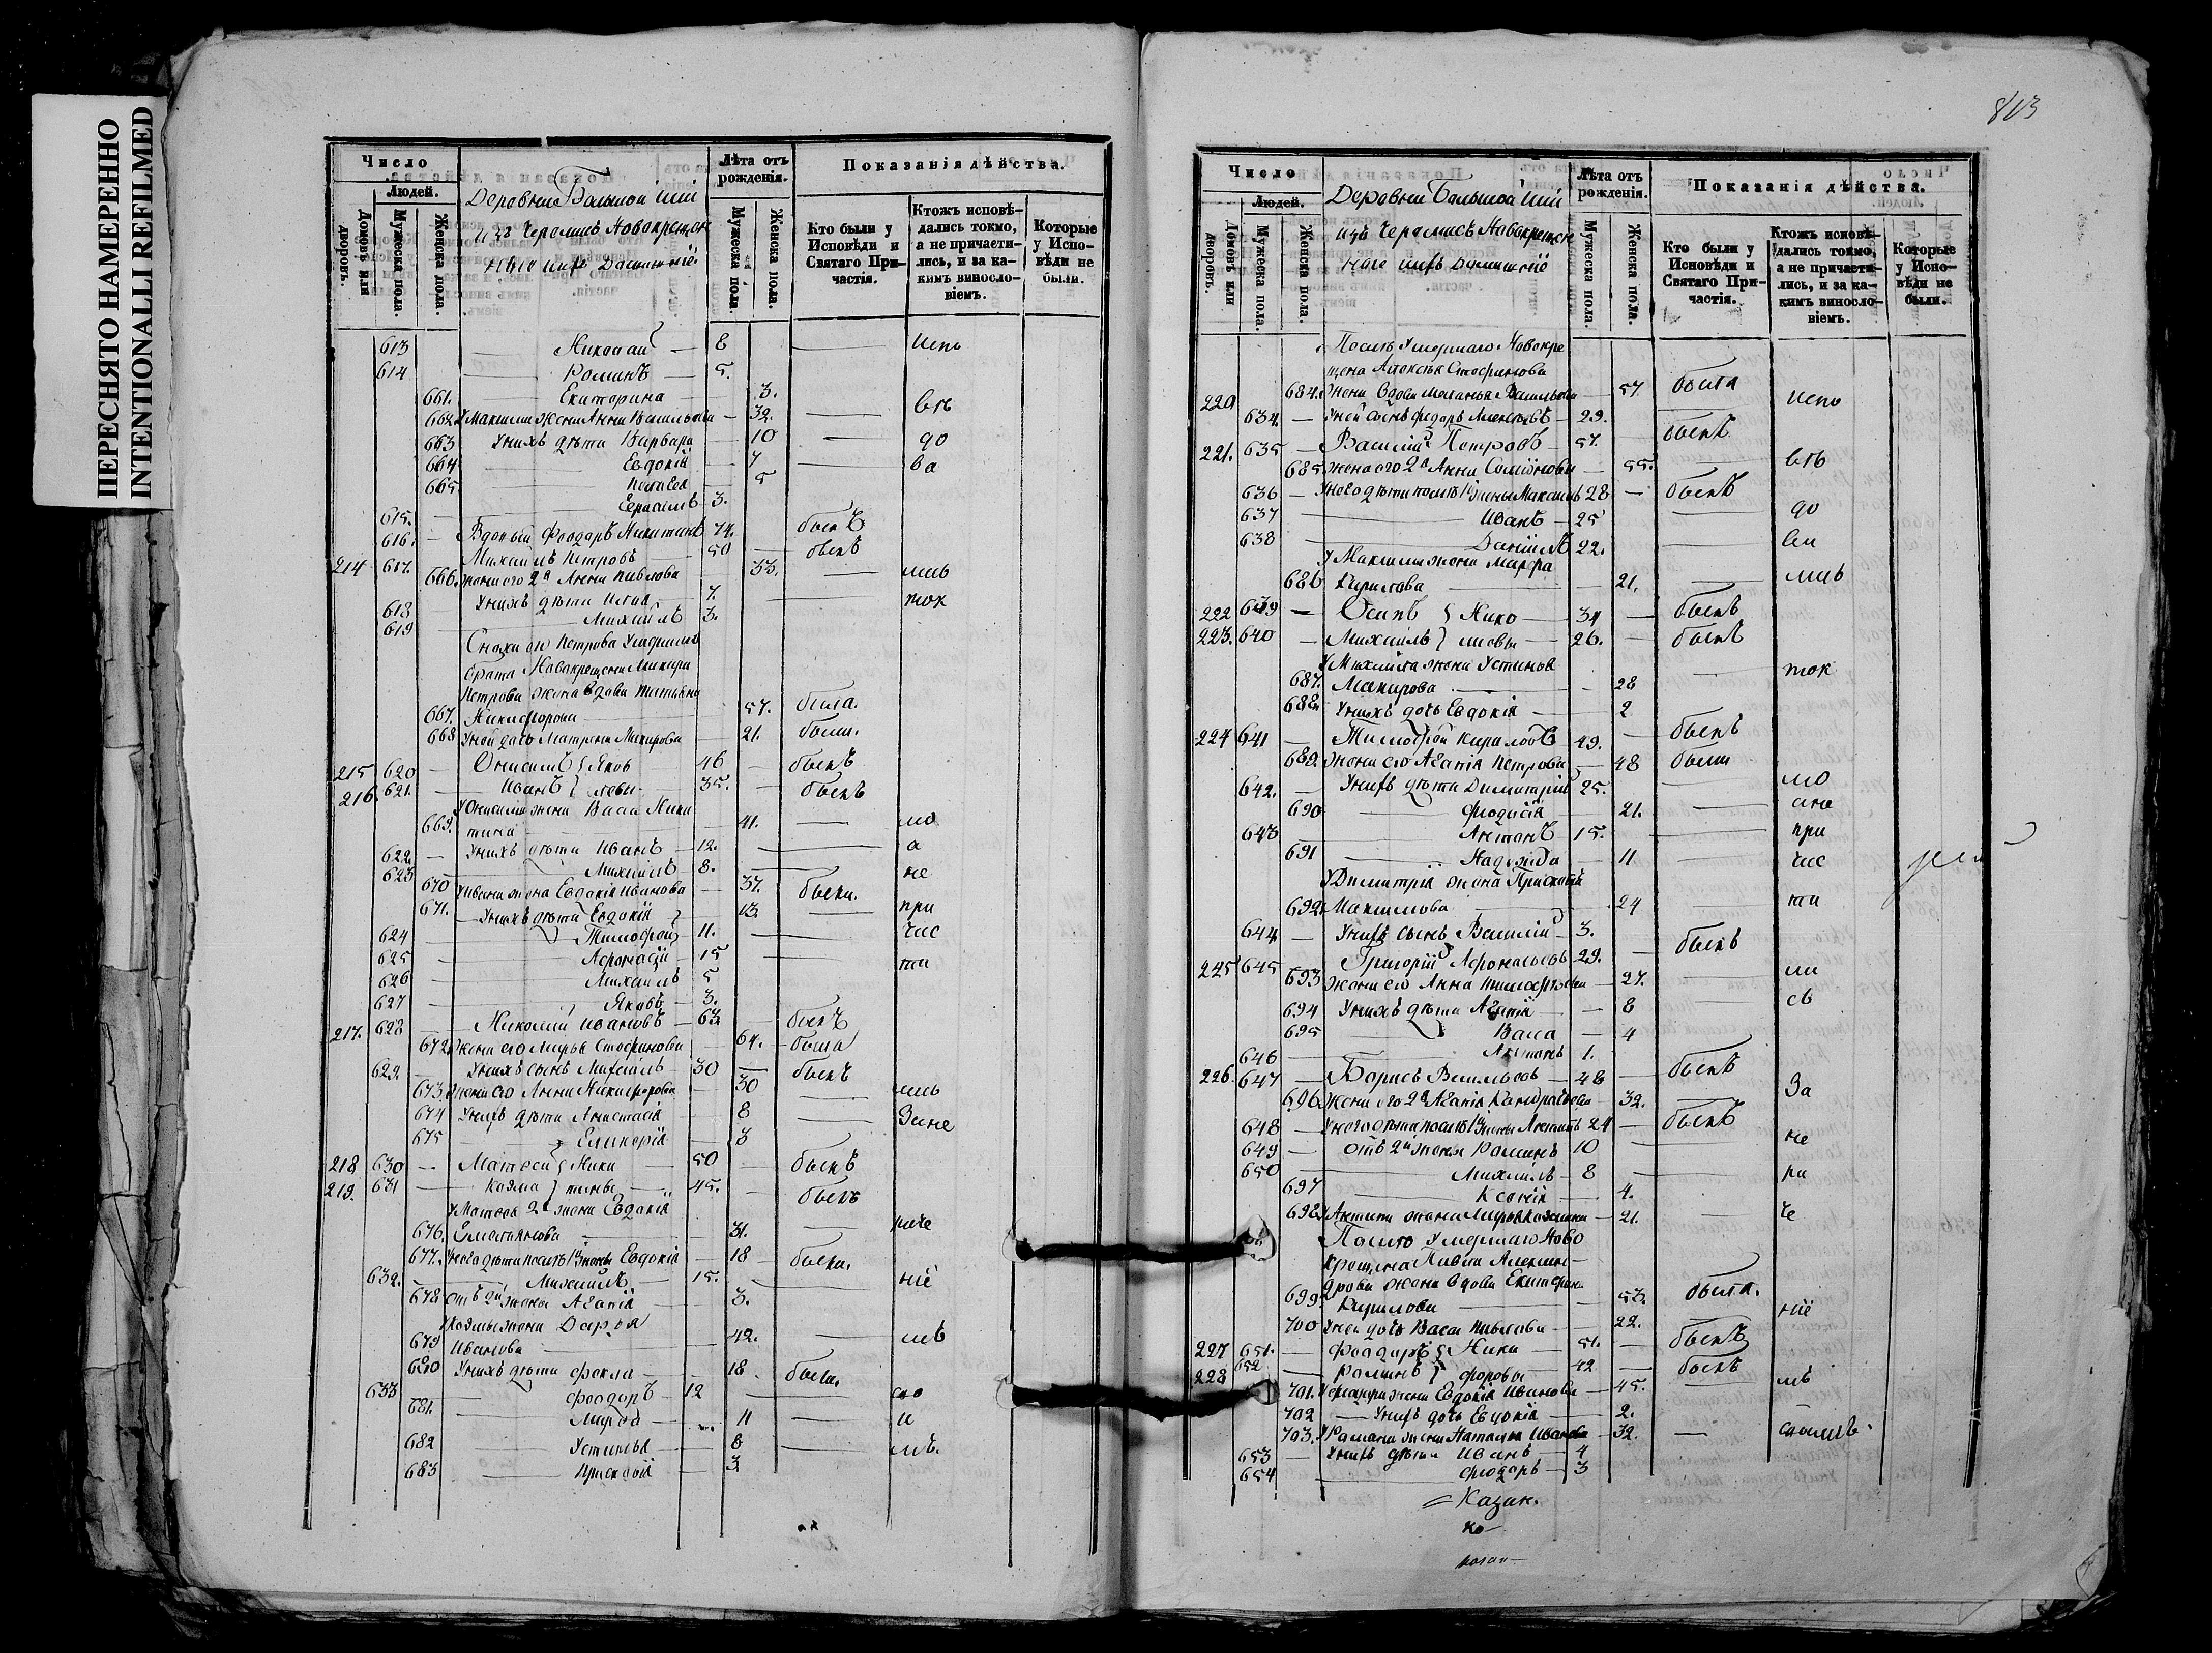 ПЕРЕСНЯТО НАМЕРЕННО
INTENTIONALLI REFILMED
813
Число
Людей.
Домовъ или дворовъ.
Мужеска пола.
Женска пола.
Деревни Большой
изъ Черемисъ Новокрещен
Лѣта отъ рожденія.
Мужеска пола.
Женска пола.
Показанія дѣйства.
Кто были у Исповѣди и Святаго Причастія.
Ктожъ исповѣдались токмо, а не причастились, и за какимъ винословіемъ.
Которые у Исповѣди не были.
613 Николай 8 испо
614 Романъ 5.
661. Екатерина 3.
662 жена Анна Васильева 32. вѣ
663 У нихъ дѣти Варвара 10 до
664 Евдокія 7 ва
665 5
615. 3.
616. Вдовый Феодоръ Никитинъ 74. былъ
214 617. Михаилъ Петровъ 50 былъ
666. жена его 2я Анна Павлова 33. лись
618 У нихъ дѣти 7. ток
619 Михаилъ 3.
Петрова
брата Новокрещена
Петрова жена вдова Татьяна
667. Никифорова 57. была.
668 У ней дочь Матрена 21. была.
215 620 Яков 46 былъ
216. 621. Иванъ левы 35. былъ
жена Васа Ники
669. тина 41. мо
622. У нихъ дѣти Иванъ 12. а
623 Михаилъ 8. не
670 У Ивана жена Евдокія Иванова 37. была. при
671. У нихъ дѣти Евдокія 13.
624 Тимофей 11. час
625 Афонасій 15 ти
626 Михаилъ 5
627 Яковъ 3.
217. 628 Николай Ивановъ 63 былъ
672. Жена его Марья 64. была
629. У нихъ сынъ Михаилъ 30 былъ
673. Жена его Анна Никифорова 30 лись
674 У нихъ дѣти Анастасія 8 Зане
675 3
218 630 Матвей Ники 50 былъ
219. 631 Козма тины 45. былъ
У Матвея 2я жена Евдокія
676. Емельянова 31. риче
677. У него дѣти послѣ 1й жены Евдокія 18 была.
632. Михаилъ 15. ніе
678 отъ 2й жены Агапія 3.
У Козмы жена Дарья
679 Иванова 42. мъ
680 У нихъ дѣти Фекла 18 была.
633 Феодоръ 12
681. Марфа 11 и
682 Устинья 8 мъ.
683 3
Число
Людей.
Домовъ или дворовъ.
Мужеска пола.
Женска пола.
Деревни Большой
изъ Черемисъ Новокрещен
Лѣта отъ рожденія.
Мужеска пола.
Женска пола.
Показанія дѣйства.
Кто были у Исповѣди и Святаго Причастія.
Ктожъ исповѣдались токмо, а не причастились, и за какимъ винословіемъ.
Которые у Исповѣди не были.
Послѣ умершаго Новокре
щена Алексѣя
220 684. жена вдова Васильева 57 была испо
634. У ней сынъ Федоръ Алексѣевъ 29.
221. 635 Василій Петровъ 57. былъ
685 жена его 2я Анна 55. вѣ
636 У него дѣти послѣ 1й жены Максимъ 28 былъ
637 Иванъ 25 до
638 Даніилъ 22. ва
У Максима жена Марфа
686 Кирилова 21. лись
222 639 Осипъ Нико 34 былъ
223. 640 Михаилъ лаевы 26. былъ
У Михаила жена Устинья
687. Макарова 28 ток
688. У нихъ дочь Евдокія 2
224 641 Тимофей Кириловъ 49. былъ
689. Жена его Агапія Петрова 48 была
642. У нихъ дѣти Димитрій 25. мо
690 Феодосія 21. ане
643 Антонъ 15. при
691 Надежда 11 час
У Димитрія жена
692. Максимова 24 ти
644 У нихъ сынъ Василій 3.
225 645 Григорій 29. былъ
693 Жена его Анна Тимофеева 27. ли
694 У нихъ дѣти Агапія 8 сь
695 Васа 4
646 1.
226. 647 Борисъ Васильевъ 48 былъ
696. Жена его 2я Агапія 32. За
648 У него дѣти послѣ 1й жены 24 былъ
649 отъ 2й жены Романъ 10 не
650 Михаилъ 8 ри
697 Ксенія 4.
698 жена Марья 21. че
Послѣ умершаго Ново
крещена Павла Алексан
дрова жена вдова Екатерина
699. Кирилова 53. была.
700 У ней дочь Васа Павлова 22. ніе
227 651. Феодоръ Ники 51. былъ
228 652 Романъ форовы 42 былъ
701. У Феодора жена Евдокія Иванова 45. мъ
702 У нихъ дочь Евдокія 2.
703. У Романа жена Наталья Иванова 32.
653 У нихъ дѣти Иванъ 4
654 Феодоръ 3
Казан.
ко